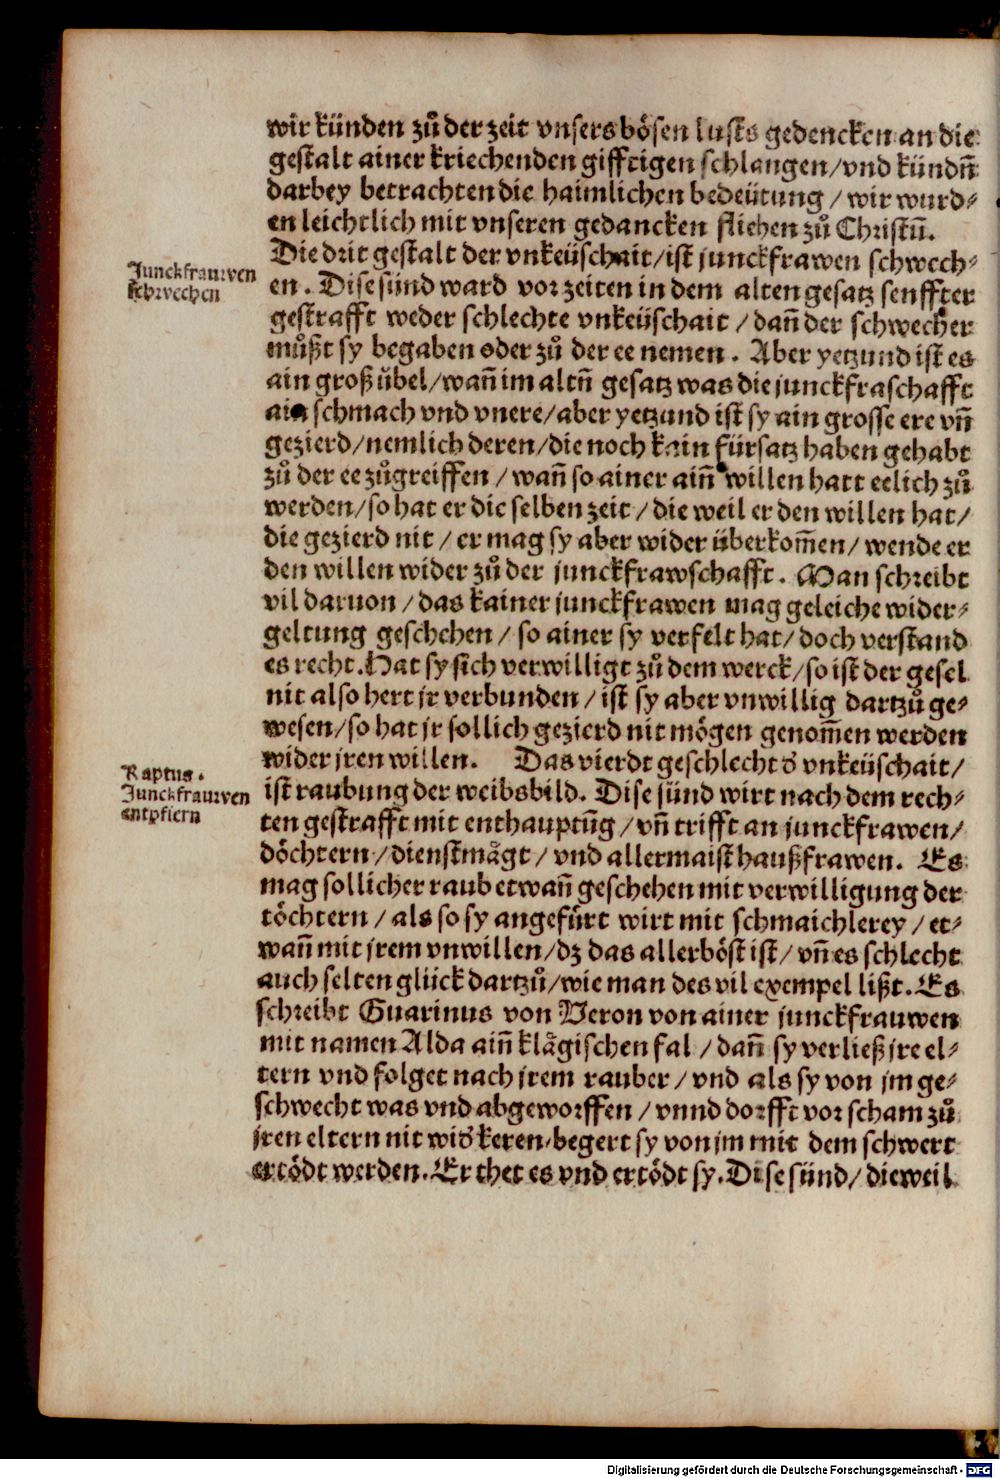 wir künden zů der zeit vnsers bösen lusts gedencken an die
gestalt ainer kriechenden gifftigen schlangen/vnd kündñ
darbey betrachten die haimlichen bedeütung / wir wurd⸗
en leichtlich mit vnseren gedancken fliehen zů Christū.
Die drit gestalt der vnkeüschait/ist junckfrawen schwech⸗
Junckfrauwen
schwechen
en. Dise sünd ward vor zeiten in dem alten gesatz senffter
gestrafft weder schlechte vnkeüschait / dañ der schwecher
můßt sy begaben oder zů der ee nemen. Aber yetzund ist es
ain groß übel/wañ im altñ gesatz was die junckfraschafft
ain schmach vnd vnere/aber yetzund ist sy ain grosse ere vñ
gezierd/nemlich deren/die noch kain fürsatz haben gehabt
zů der ee zůgreiffen / wañ so ainer aiñ willen hatt eelich zů
werden/so hat er die selben zeit / die weil er den willen hat/
die gezierd nit / er mag sy aber wider überkom̄en/ wende er
den willen wider zů der junckfrawschafft. Man schreibt
vil daruon / das kainer junckfrawen mag geleiche wider⸗
geltung geschehen / so ainer sy verfelt hat/ doch verstand
es recht. Hat sy sich verwilligt zů dem werck/so ist der gesel
nit also hert jr verbunden / ist sy aber vnwillig dartzů ge⸗
wesen/so hat jr sollich gezierd nit mögen genom̄en werden
wider jren willen. Das vierdt geschlecht d' vnkeüschait/
Raptus.
Junckfrauwen
entpfiern
ist raubung der weibsbild. Dise sünd wirt nach dem rech⸗
ten gestrafft mit enthauptūg / vñ trifft an junckfrawen/
döchtern / dienstmägt / vnd allermaist haußfrawen. Es
mag sollicher raub etwañ geschehen mit verwilligung der
töchtern / als so sy angefürt wirt mit schmaichlerey / et⸗
wañ mit jrem vnwillen/dz das allerböst ist/ vñ es schlecht
auch selten glück dartzů/wie man des vil exempel lißt. Es
schreibt Guarinus von Veron von ainer junckfrauwen
mit namen Alda aiñ klägischen fal / dañ sy verließ jre el⸗
tern vnd folget nach jrem rauber / vnd als sy von jm ge⸗
schwecht was vnd abgeworffen / vnnd dorfft vor scham zů
jren eltern nit wid' keren/begert sy von jm mit dem schwert
ertödt werden. Er thet es vnd ertödt sy. Dise sünd/ dieweil
Digitalisierung gefördert durch die Deutsche Forschungsgemeinschaft - DFG